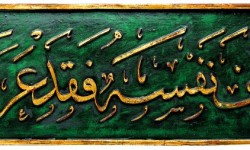 ف نفسه فقد عر